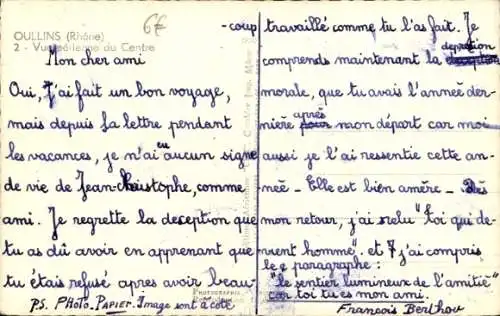 OULLINS (Rhône)
2 - Vue aérienne du Centre
6F
Mon cher ami
Oui, J'ai fait un bon voyage,
mais depuis ta lettre pendant
les vacances, je n'ai eu aucun signe
de vie de Jean-Christophe, comme
ami. Je regrette la deception que
tu as dû avoir en apprenant que
tu étais refusé apres avoir beau-
P.S. PHOTO. PAPIER. Image sont à côté
-coup travaillé comme tu l'as fait. Je
comprends maintenant la depretion
morale, que tu avais l'anneê der-
nière après mon départ car moi
aussi je l'ai ressentie cette an-
neê - Elle est bien amère - Dès
mon retour, j'ai relu "Toi qui de-
vient homme". et J'ai compris
le paragraphe :
"le sentier lumineux de l'amitié"
car toi tu es mon ami.
François Berthou